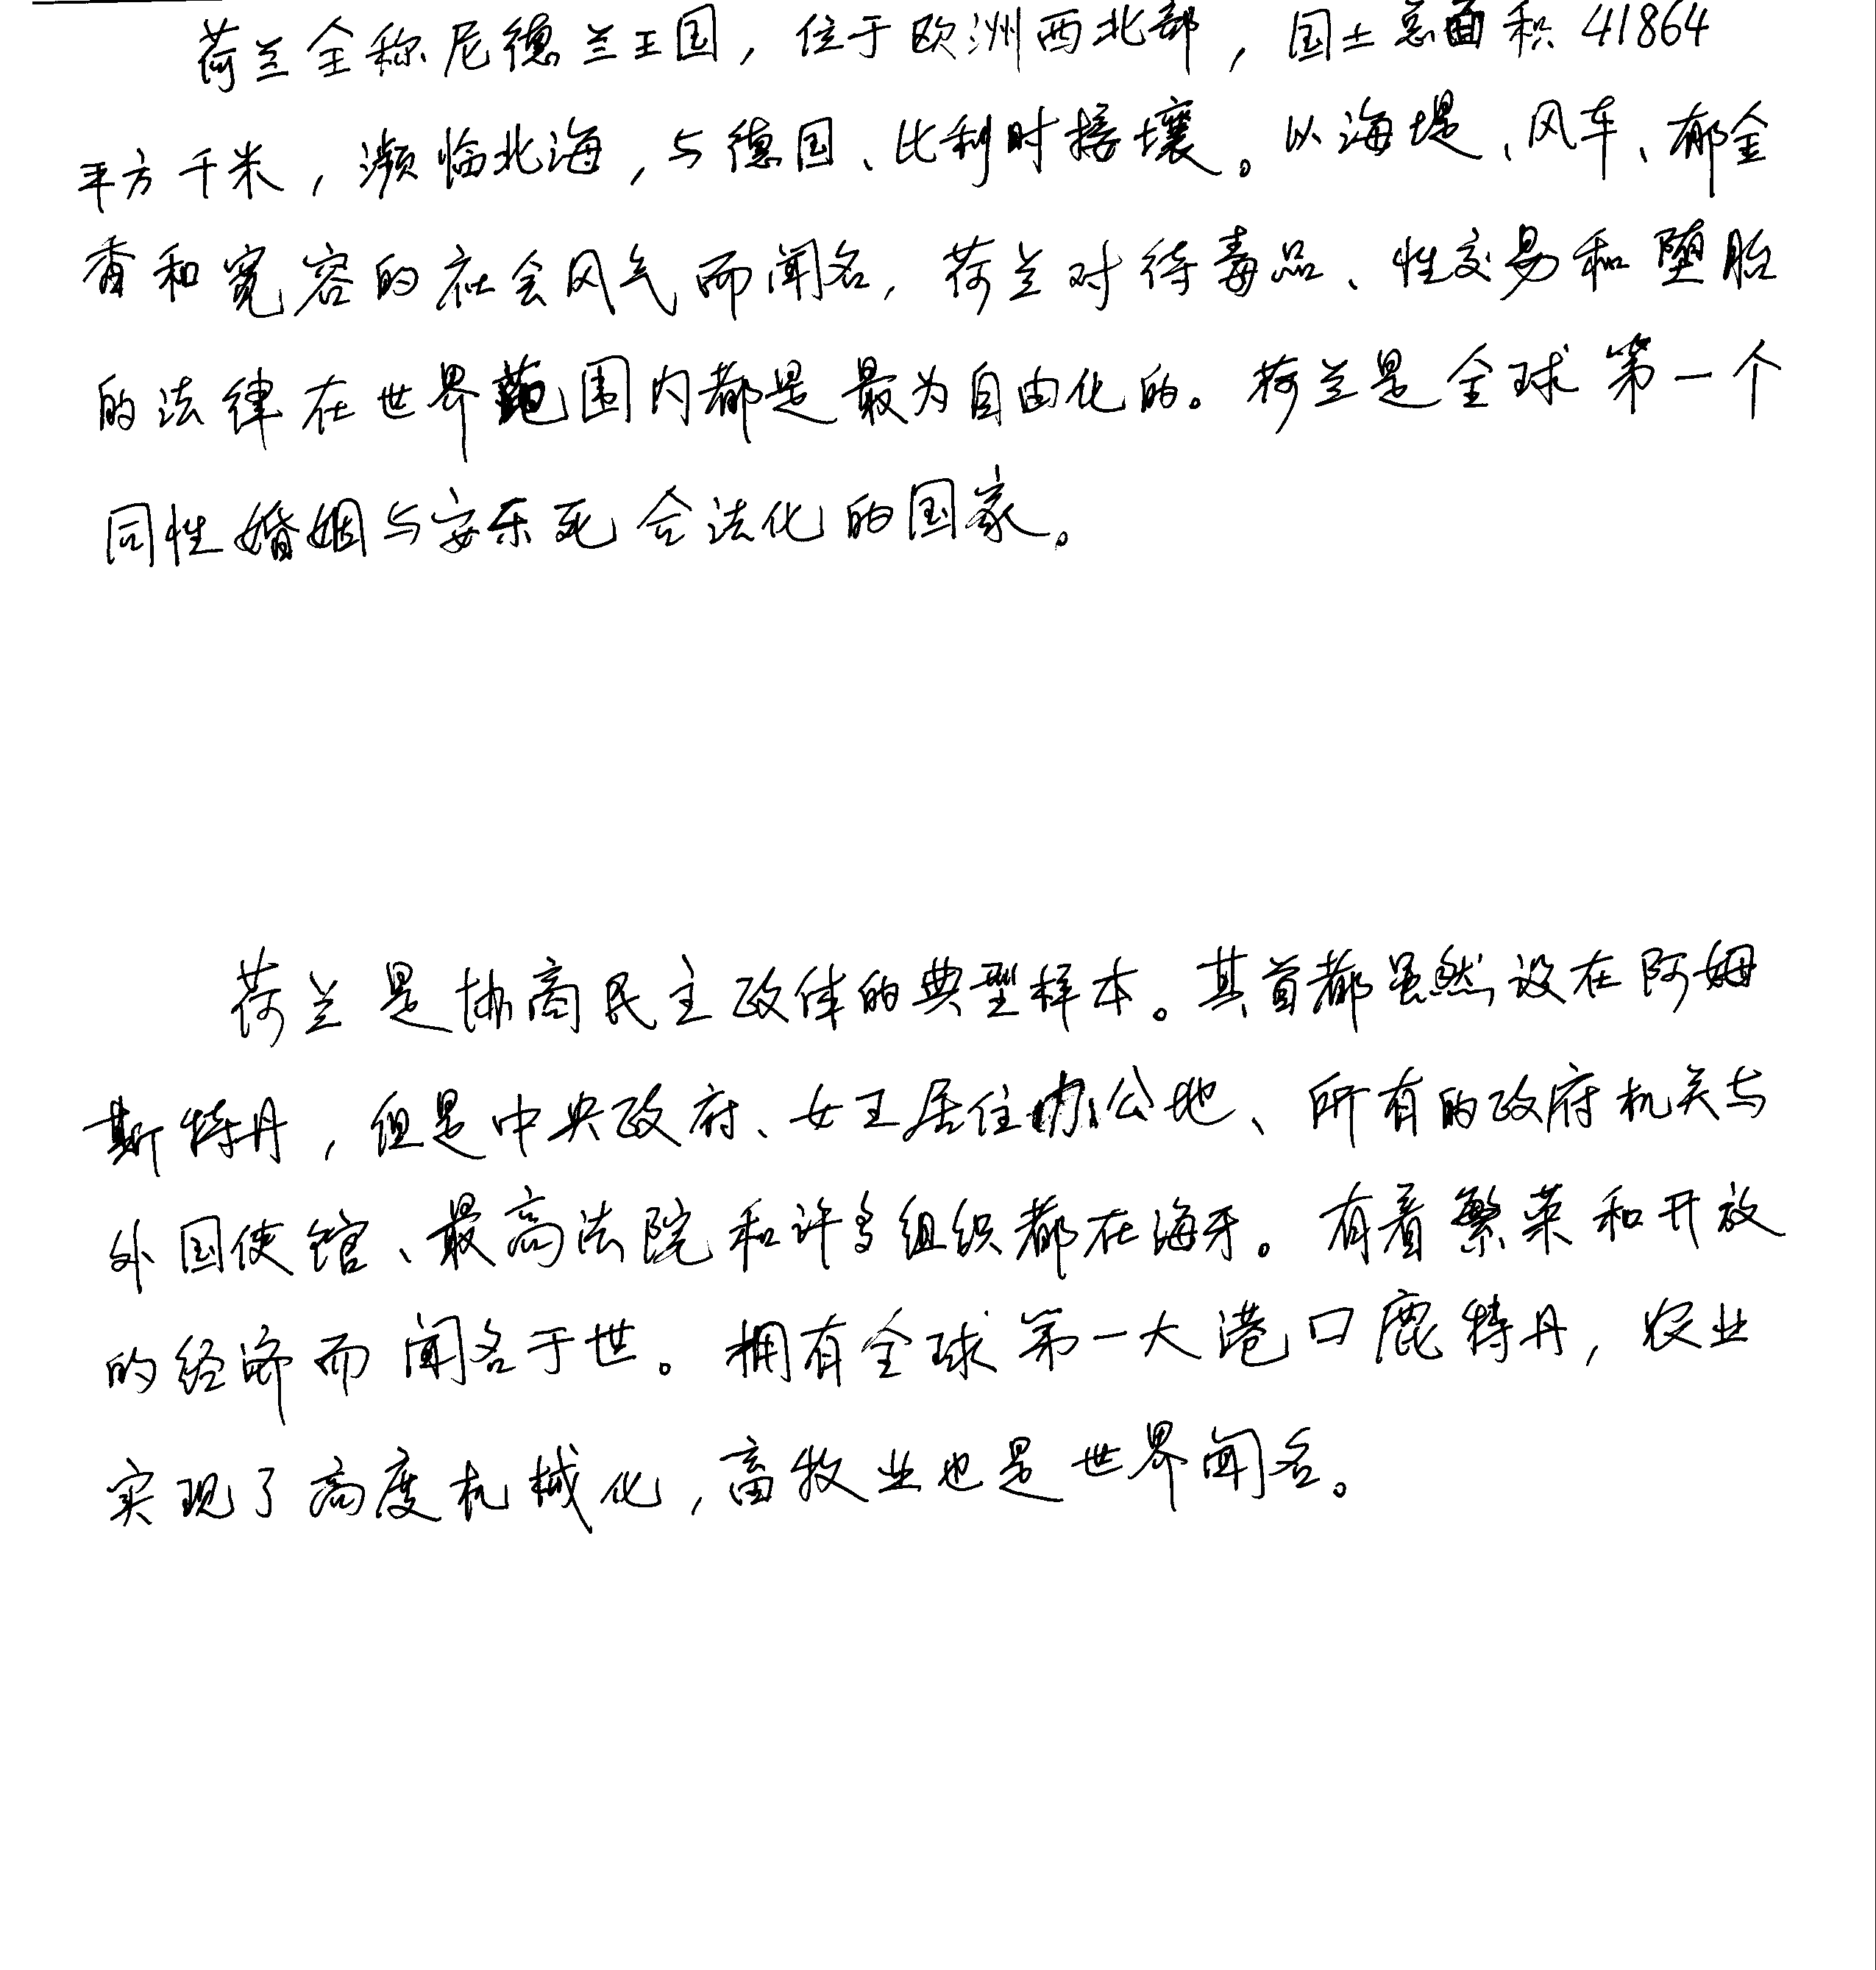 荷兰全称尼德兰王国，位于欧洲西北部，国土总面积41864
平方千米，濒临北海，与德国、比利时接壤。以海堤、风车、郁金
香和宽容的社会风气而闻名，荷兰对待毒品、性交易和堕胎
的法律在世界范围内都是最为自由化的。荷兰是全球第一个
同性婚姻与安乐死合法化的国家。
荷兰是协商民主政体的典型样本。其首都虽然设在阿姆
斯特丹，但是中央政府、女王居住办公地、所有的政府机关与
外国使馆、最高法院和许多组织都在海牙。有着繁荣和开放
的经济而闻名于世。拥有全球第一大港口鹿特丹，农业
实现了高度机械化，畜牧业也是世界闻名。